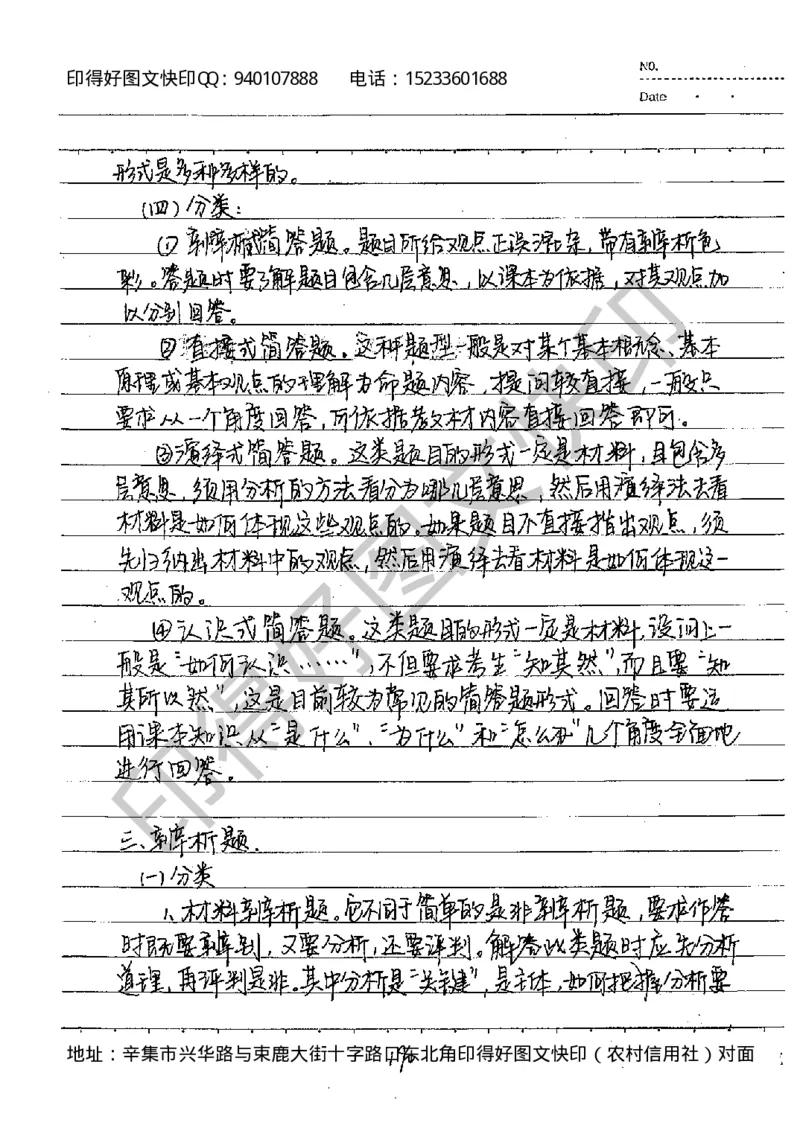 印得好图文快印QQ：940107888　电话：15233601688
NO.
Date
形式是多种多样的。
(四)分类：
① 辨析式简答题。题目所给观点正误混杂，带有辨析色
彩。答题时要了解题目包含几层意思，以课本为依据，对其观点加
以分别回答。
② 直接式简答题。这种题型一般是对某个基本概念、基本
原理或基本观点的理解为命题内容，提问较直接，一般只
要求从一个角度回答，可依据教材内容直接回答即可。
③演绎式简答题。这类题目的形式一定是材料，且包含多
层意思，须用分析的方法看分为哪几层意思，然后用演绎法去看
材料是如何体现这些观点的。如果题目不直接指出观点，须
先归纳出材料中的观点，然后用演绎去看材料是如何体现这一
观点的。
④认识式简答题。这类题目的形式一定是材料，设问上一
般是“如何认识……”，不但要求考生“知其然”，而且要“知
其所以然”，这是目前较为常见的简答题形式。回答时要运
用课本知识从“是什么”、“为什么”和“怎么办”几个角度全面地
进行回答。
三、辨析题.
(一)分类
1、材料辨析题。它不同于简单的是非辨析题，要求作答
时既要辨别，又要分析，还要评判。解答此类题时应先分析
道理，再评判是非。其中分析是“关键”，是主体，如何把握分析要
地址：辛集市兴华路与束鹿大街十字路口东北角印得好图文快印（农村信用社）对面
印得好图文快印